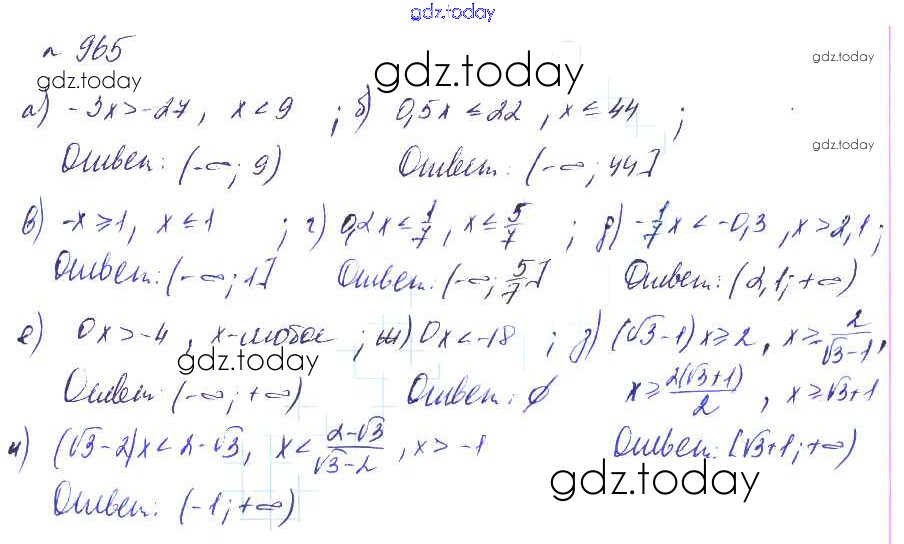 gdz.today
№ 965
gdz.today gdz.today gdz.today
а) -3x > -27, x < 9 ; б) 0,5x ≤ 22, x ≤ 44 ;
gdz.today
Ответ: (-∞; 9) Ответ: (-∞; 44]
в) -x ≥ 1, x ≤ 1 ; г) 0,2x ≤ 1/7, x ≤ 5/7 ; д) -1/7x < -0,3, x > 2,1 ;
Ответ: (-∞; 1] Ответ: (-∞; 5/7] Ответ: (2,1; +∞)
е) 0x > -4, x-любое ; ж) 0x < -18 ; з) (√3-1)x ≥ 2, x ≥ 2/(√3-1),
gdz.today
Ответ: (-∞; +∞) Ответ: ∅ x ≥ 2(√3+1)/2, x ≥ √3+1
и) (√3-2)x < 2-√3, x < (2-√3)/(√3-2), x > -1 Ответ: [√3+1; +∞)
gdz.today
Ответ: (-1; +∞)